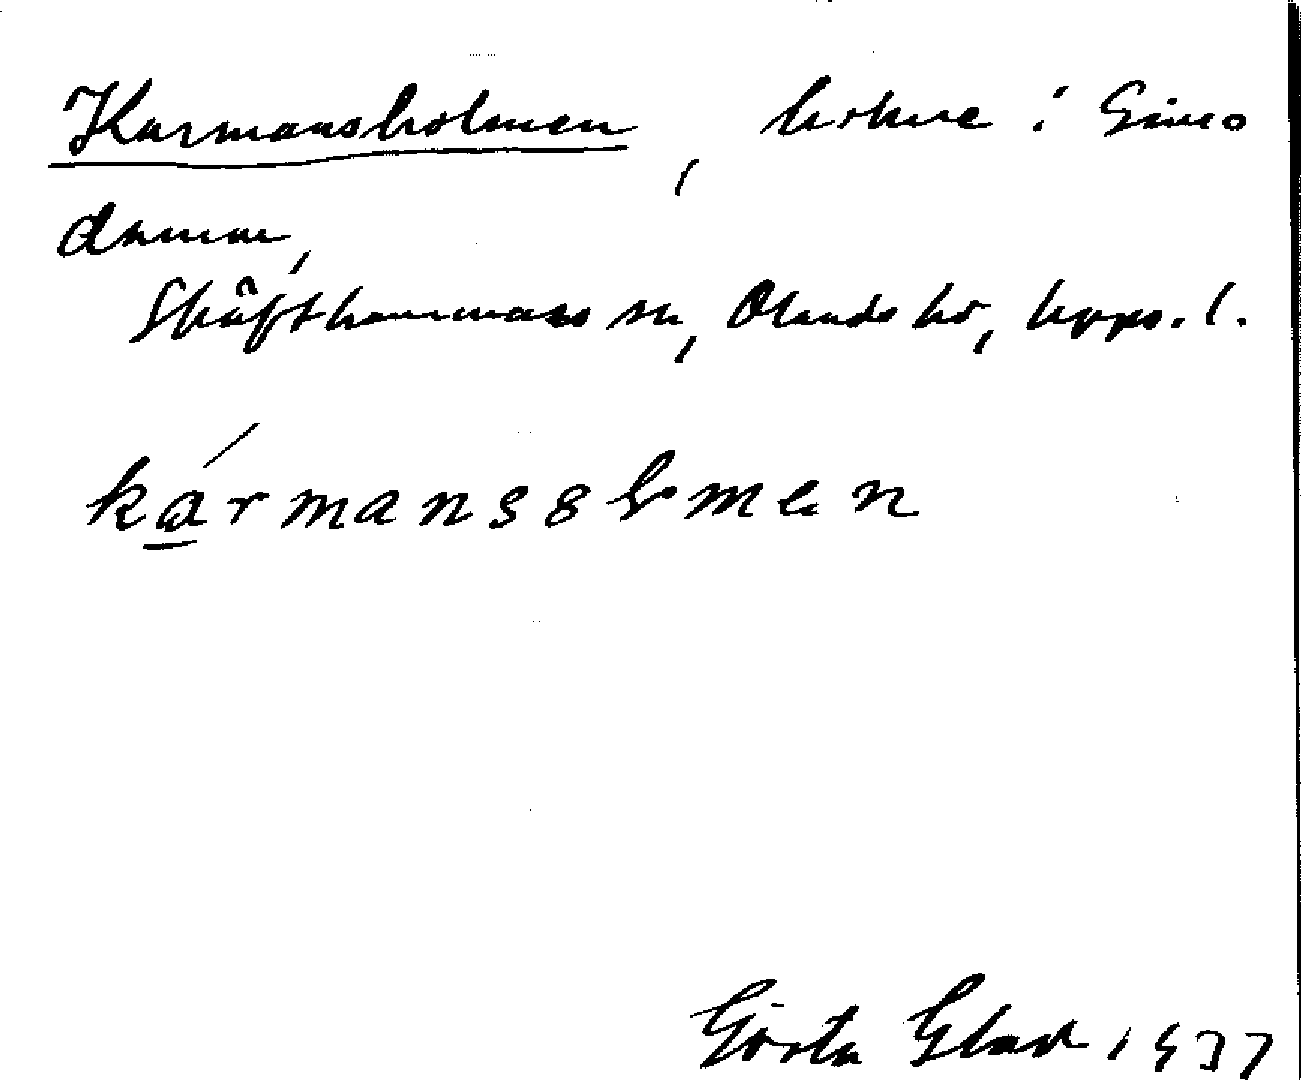 Karmansholmen, holme i Gimo
damm,
Skäfthammars sn, Olands hd, Upps. l.
kármansɷɫmen
Gösta Glad 1937